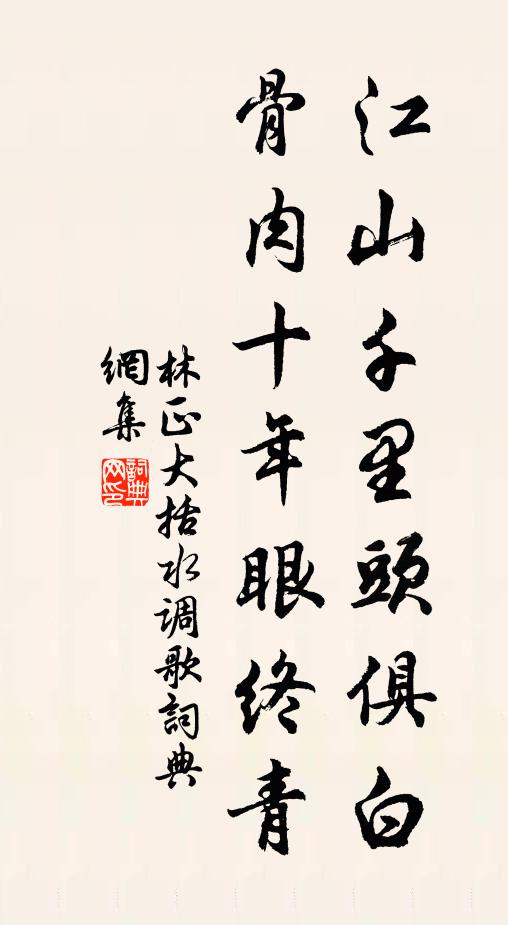 江山千里頭俱白
骨肉十年眼終青
林正大括水调歌詞典
網集
詞典
网印